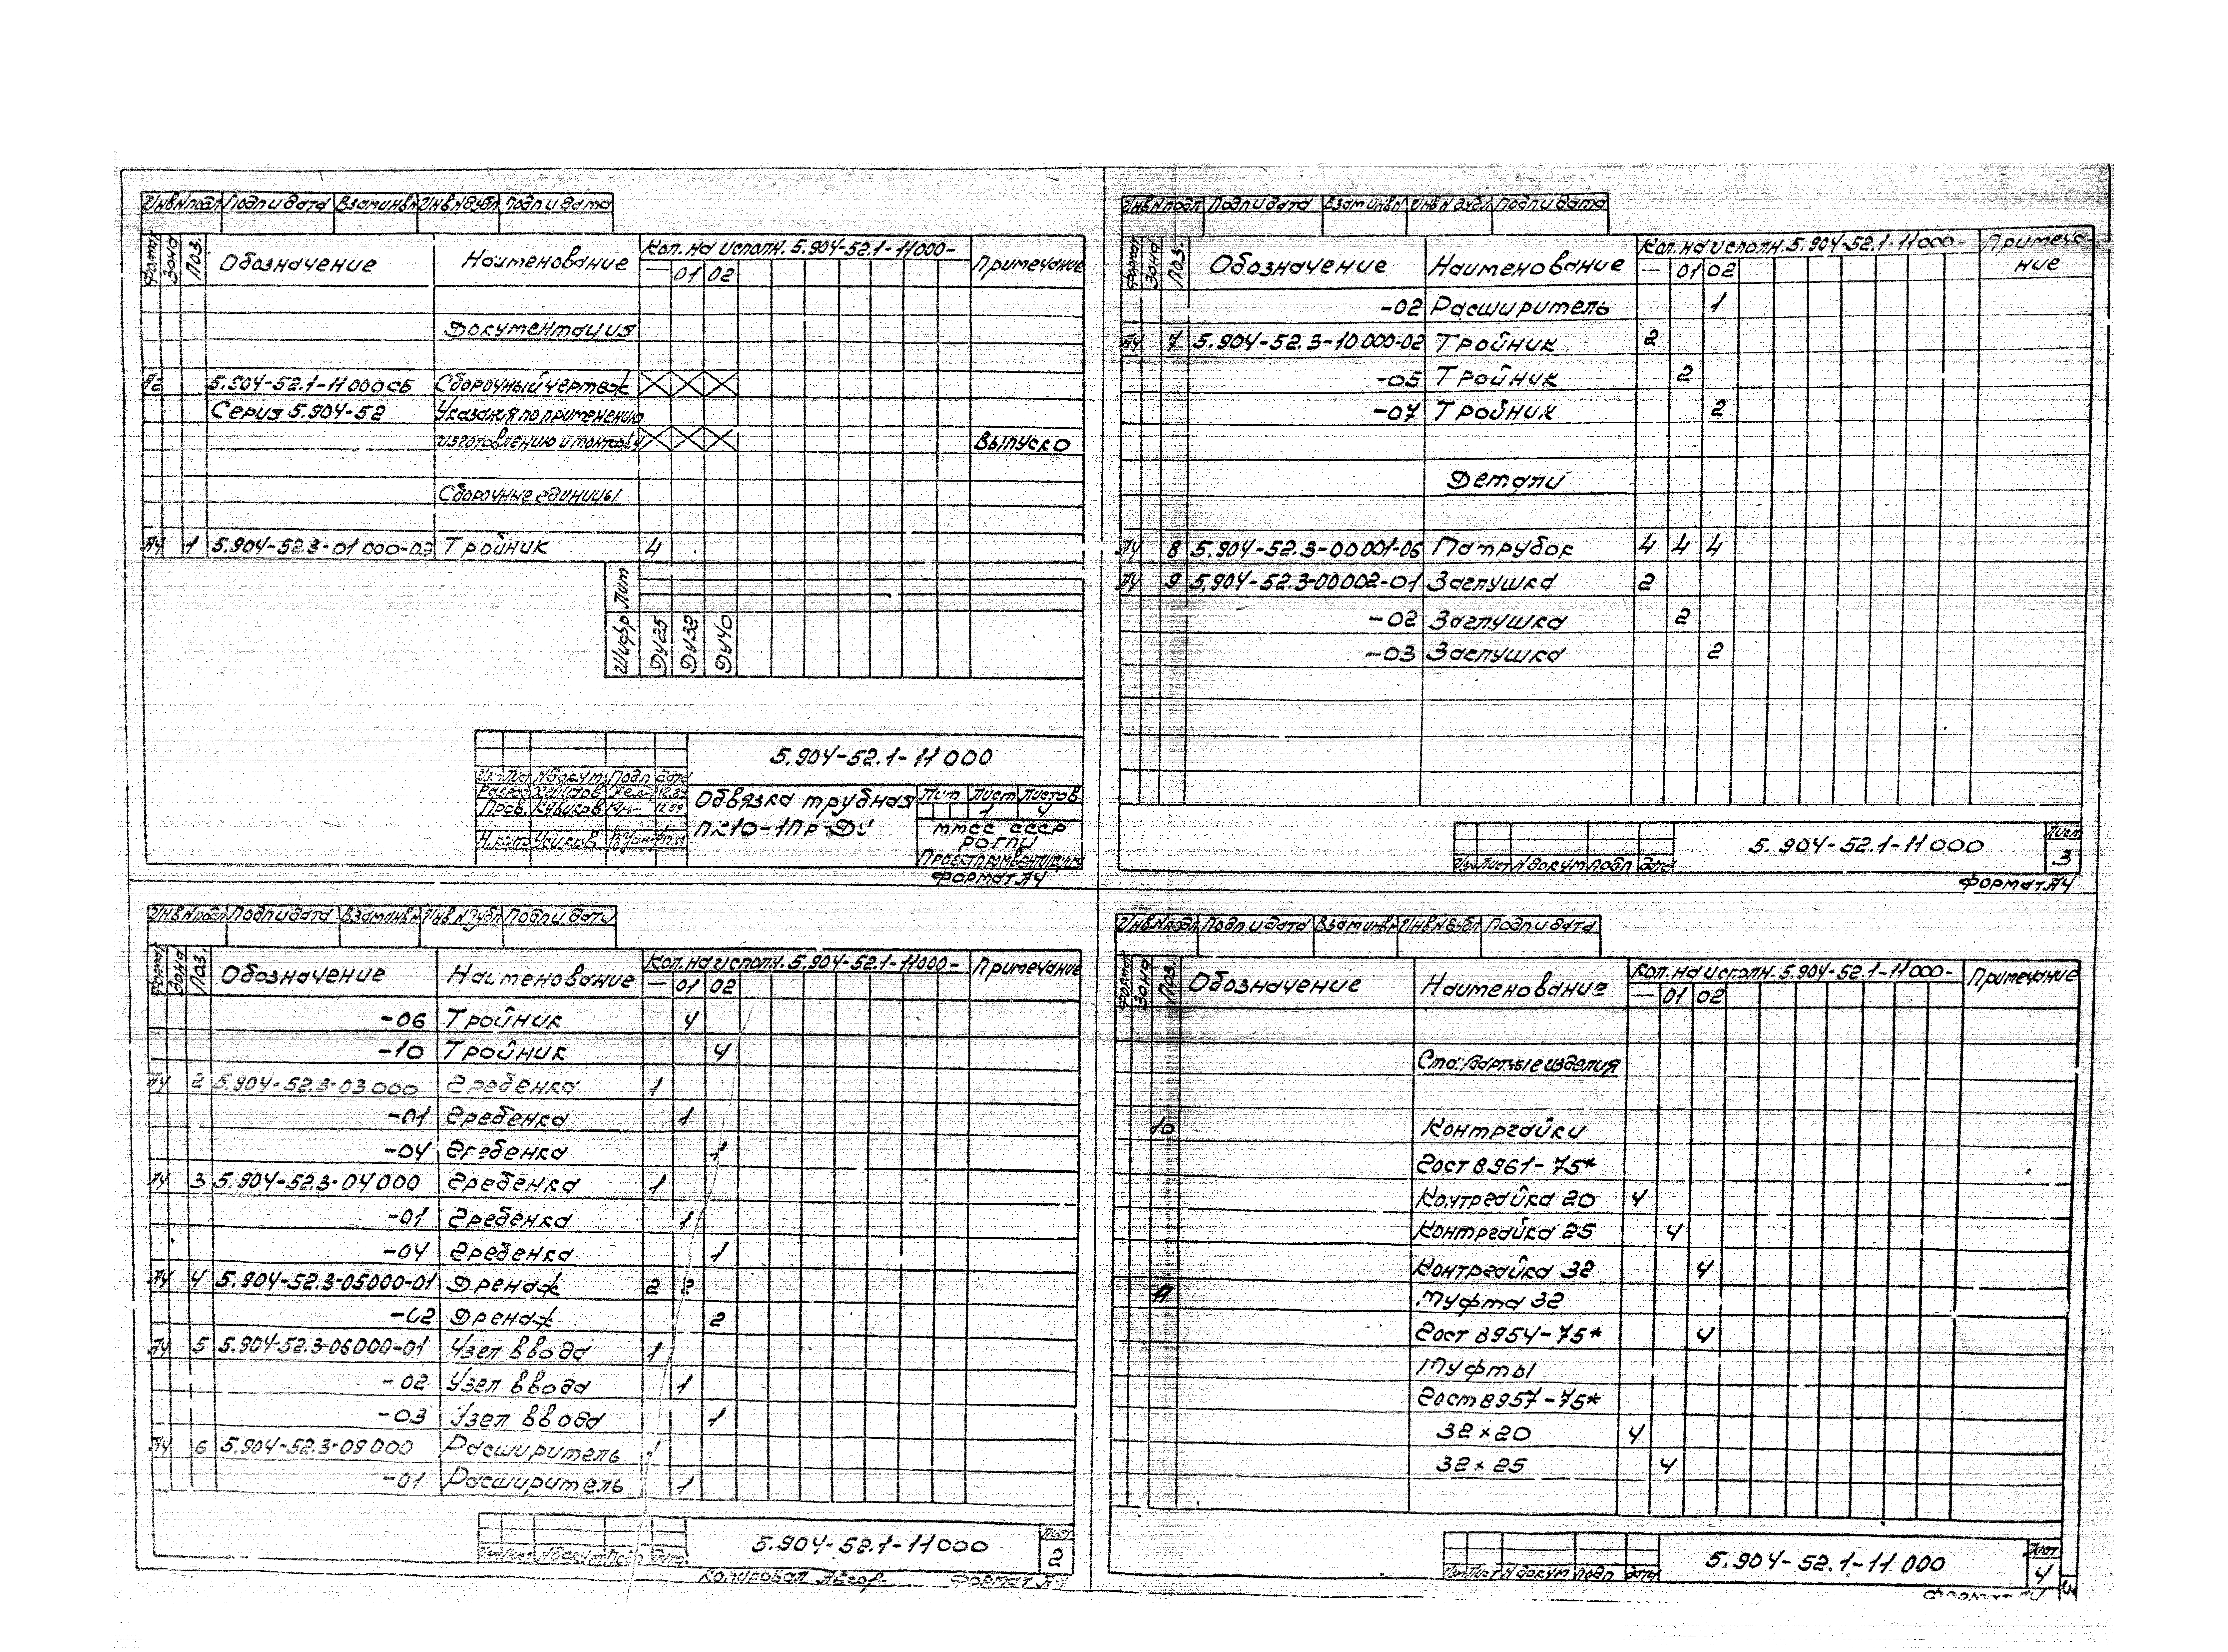 Инв.N подл Подп и дата Взам инв N Инв N дубл Подп и дата
Формат Зона Поз. Обозначение Наименование Кол. на исполн. 5.904-52.1-11000- Примечание
— 01 02
Документация
А2 5.904-52.1-11000СБ Сборочный чертеж
Серия 5.904-52 Указания по применению
изготовлению и монтажу Выпуск 0
Сборочные единицы
А4 1 5.904-52.3-01000-03 Тройник 4
Лит
Шифр Ду25 Ду32 Ду40
5.904-52.1-11 000
Изм Лист N докум Подп Дата
12.89
Пров. Кубиков 12.89
Н.конт Усиков 12.89
Обвязка трубная
ПК10-1Пр-Ду
Лит Лист Листов
1 4
ММСС СССР
РОГПИ
Проектпромвентиляция
Формат А4
Инв N подл Подп и дата Взам инв N Инв N дубл Подп и дата
Формат Зона Поз. Обозначение Наименование Кол. на исполн. 5.904-52.1-11000- Примечание
— 01 02
-06 Тройник 4
-10 Тройник 4
А4 2 5.904-52.3-03000 Гребенка 1
-01 Гребенка 1
-04 Гребенка 1
А4 3 5.904-52.3-04000 Гребенка 1
-01 Гребенка 1
-04 Гребенка 1
А4 4 5.904-52.3-05000-01 Дренаж 2 2
-02 Дренаж 2
А4 5 5.904-52.3-06000-01 Узел ввода 1
-02 Узел ввода 1
-03 Узел ввода 1
А4 6 5.904-52.3-09000 Расширитель 1
-01 Расширитель 1
Изм Лист N докум Подп Дата
5.904-52.1-11000
Лист
2
Копировал Формат А4
Инв N подл Подп и дата Взам инв N Инв N дубл Подп и дата
Формат Зона Поз. Обозначение Наименование Кол. на исполн. 5.904-52.1-11000- Примеча-
ние
— 01 02
-02 Расширитель 1
А4 7 5.904-52.3-10000-02 Тройник 2
-05 Тройник 2
-07 Тройник 2
Детали
А4 8 5.904-52.3-00001-06 Патрубок 4 4 4
А4 9 5.904-52.3-00002-01 Заглушка 2
-02 Заглушка 2
-03 Заглушка 2
Изм Лист N докум Подп Дата
5.904-52.1-11000
Лист
3
Формат А4
Инв N подл Подп и дата Взам инв N Инв N дубл Подп и дата
Формат Зона Поз. Обозначение Наименование Кол. на исполн. 5.904-52.1-11000- Примечание
— 01 02
Стандартные изделия
10 Контргайки
Гост 8961-75*
Контргайка 20 4
Контргайка 25 4
Контргайка 32 4
11 Муфта 32
Гост 8954-75* 4
Муфты
Гост 8957-75*
32×20 4
32×25 4
Изм Лист N докум Подп Дата
5.904-52.1-11 000
Лист
4
Формат А4